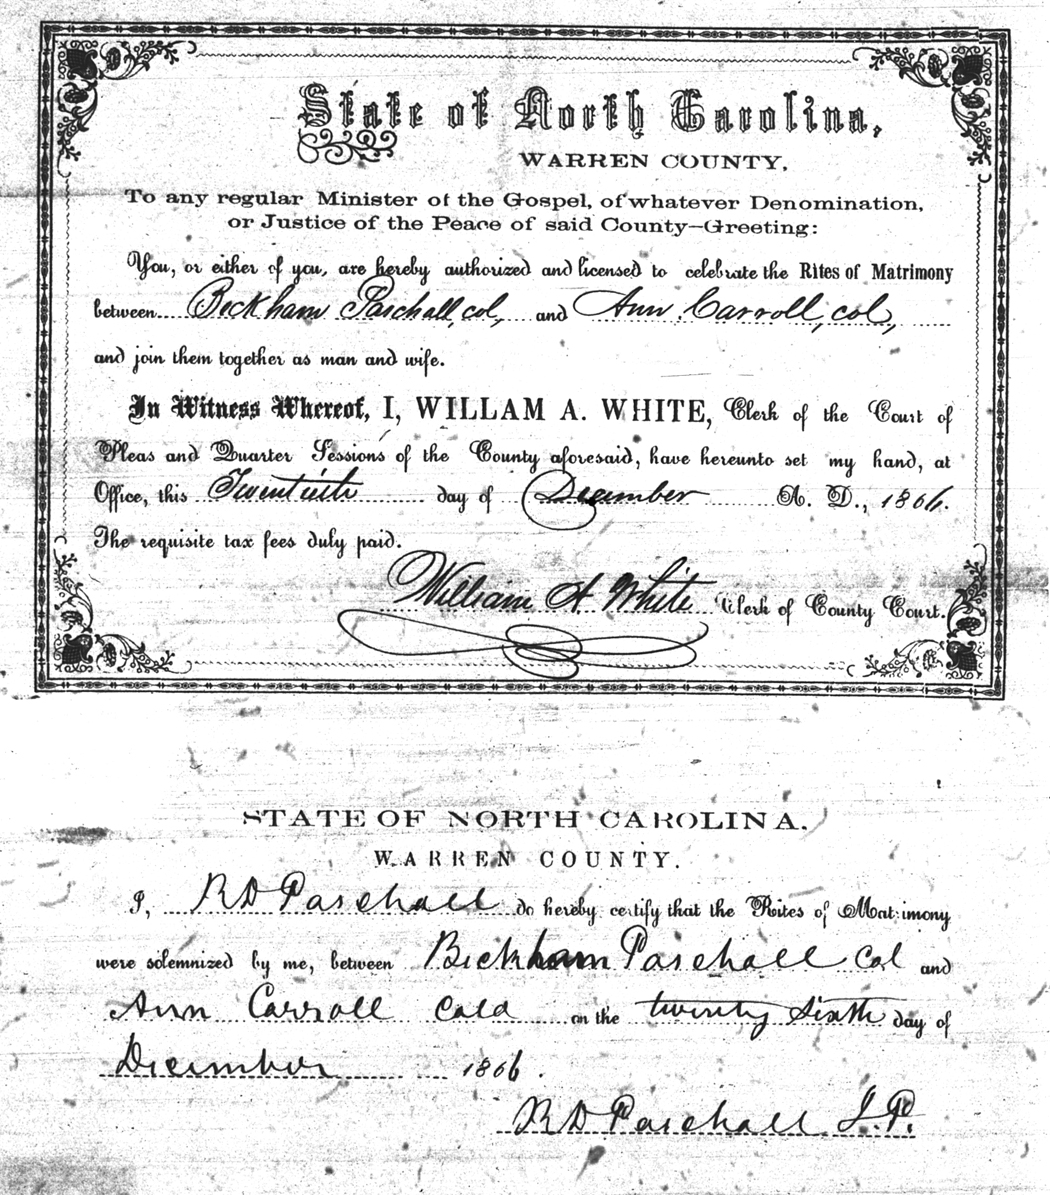 State of North Carolina,
WARREN COUNTY,
To any regular Minister of the Gospel, of whatever Denomination,
or Justice of the Peace of said County—Greeting:
You, or either of you, are hereby authorized and licensed to celebrate the Rites of Matrimony
between Beckham Paschall, col, and Ann Carroll, col,
and join them together as man and wife.
In Witness Whereof, I, WILLAM A. WHITE, Clerk of the Court of
Pleas and Quarter Sessions of the County aforesaid, have hereunto set my hand, at
Office, this Twentieth day of December A. D., 1866.
The requisite tax fees duly paid.
William A White Clerk of County Court.
STATE OF NORTH CAROLINA.
WARREN COUNTY.
I, R D Paschall do hereby certify that the Rites of Matrimony
were solemnized by me, between Beckham Paschall Col and
Ann Carroll Cold on the twenty sixth day of
December 1866.
R D Paschall J.P.